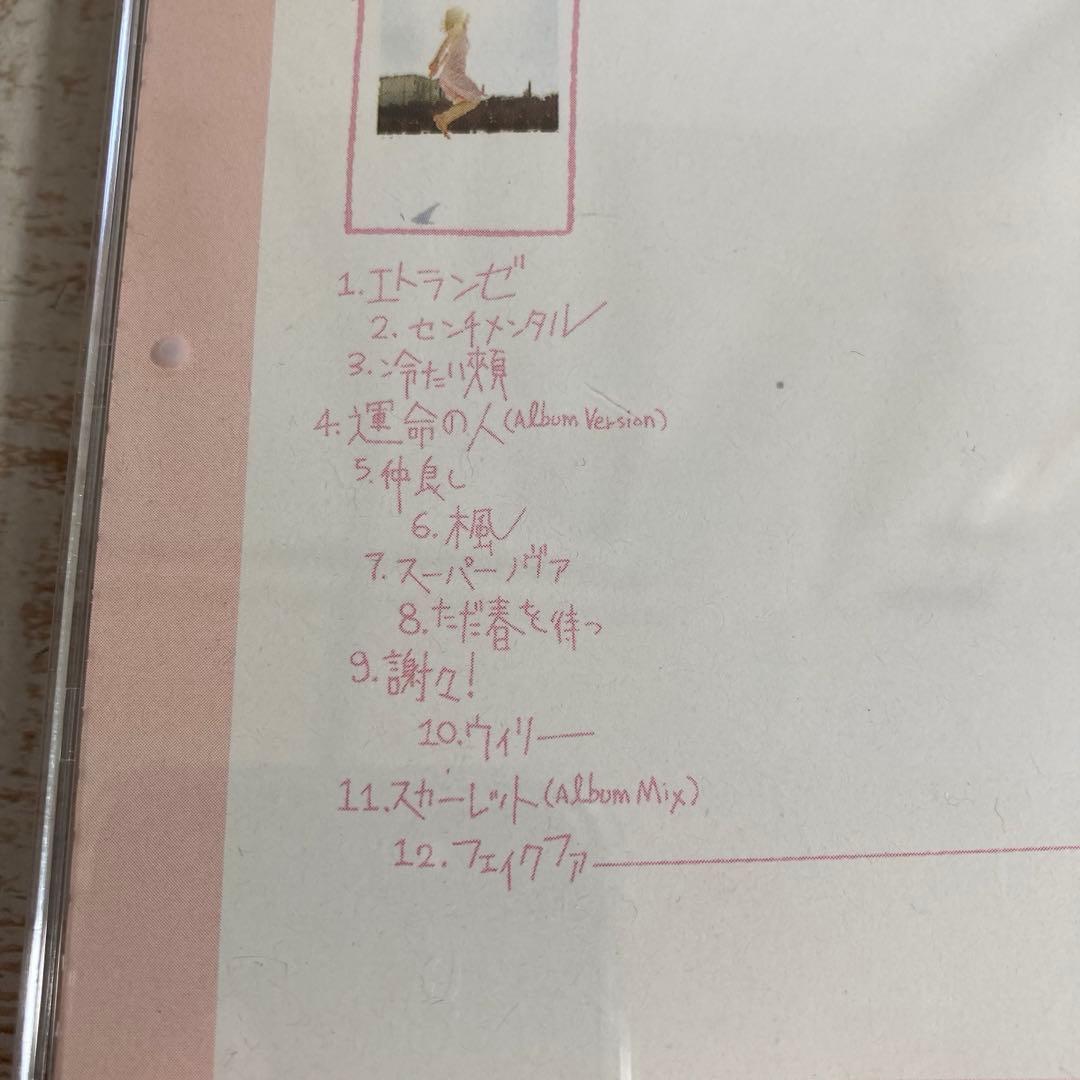 1.エトランゼ
2.センチメンタル
3.冷たい頬
4.運命の人(Album Version)
5.仲良し
6.楓
7.スーパーノヴァ
8.ただ春を待つ
9.謝々!
10.ウィリー
11.スカーレット(Album Mix)
12.フェイクファー